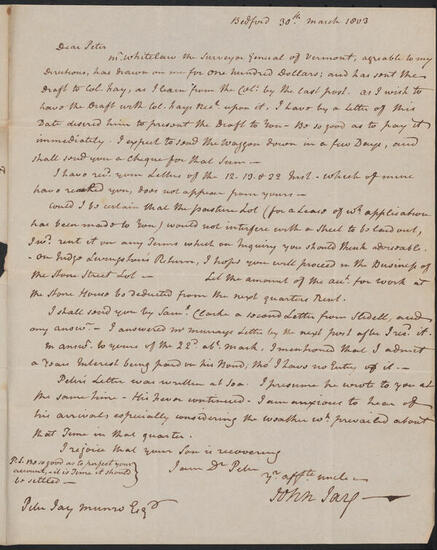 Bedford 30th. March 1803
Dear Peter
Mr. Whitelaw the Surveyor General of Vermont, agreable to my
Directions, has drawn on me for one hundred Dollars; and has sent the
Draft to Col. Hay, as I learn from the Col: by the last post. as I wish to
have the Draft with Col. Hays Rect. upon it. I have by a Letter of this
Date desired him to present the Draft to You - Be so good as to pay it
immediately. I expect to send the Waggon Down in a few Days, and
shall send you a Cheque for that Sum -
I have recd. your Letters of the 12. 19. & 22 Inst. - which of mine
have reached you, does not appear from yours -
Could I be certain that the pasture Lot (for a Lease of wh. application
has been made to You) would not interfere with a Street to be laid out,
I wd. rent it on any Terms which on Inquiry you should think adviseable.
- on Judge Livingston's Return, I hope you will proceed in the Business of
the Stone Street Lot - Let the amount of the acct. for work at
the Stone House be deducted from the next quarters Rent.
I shall send you by Saml. Clarke a second Letter from Sidell, and
my answr. - I answered Mr. Murrays Letter by the next post after I recd. it.
In answr. to yours of the 22d. ab. Mark, I mentioned that I admit
a years Interest being paid on his Bond; tho' I have no Entry of it. -
Peter's Letter was written at Sea. I presume he wrote to you at
the same time - His fever continued - I am anxious to hear of
his arrival; especially considering the weather wh. prevailed about
that Time in that quarter.
I rejoice that your Son is recovering
I am Dr. Peter
yr. affte uncle -
John Jay -
P.S. Be so good as to perfect your
account, - it is Time it should
be settled -
Peter Jay Munro Esqr.